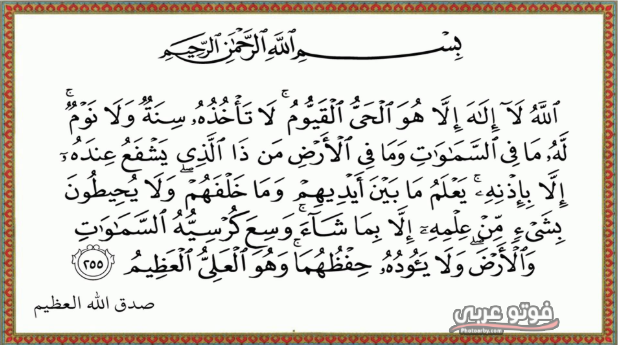 بِسْمِ اللَّهِ الرَّحْمَٰنِ الرَّحِيمِ
اللَّهُ لَآ إِلَٰهَ إِلَّا هُوَ الْحَيُّ الْقَيُّومُ ۚ لَا تَأْخُذُهُۥ سِنَةٌ وَلَا نَوْمٌ ۚ
لَّهُۥ مَا فِي السَّمَٰوَٰتِ وَمَا فِي الْأَرْضِ ۗ مَن ذَا الَّذِي يَشْفَعُ عِندَهُۥٓ
إِلَّا بِإِذْنِهِۦ ۚ يَعْلَمُ مَا بَيْنَ أَيْدِيهِمْ وَمَا خَلْفَهُمْ ۖ وَلَا يُحِيطُونَ
بِشَيْءٍ مِّنْ عِلْمِهِۦٓ إِلَّا بِمَا شَآءَ ۚ وَسِعَ كُرْسِيُّهُ السَّمَٰوَٰتِ
وَالْأَرْضَ ۖ وَلَا يَـُٔودُهُۥ حِفْظُهُمَا ۚ وَهُوَ الْعَلِيُّ الْعَظِيمُ ٢٥٥
صدق الله العظيم
فوتو عربي
Photoarby.com